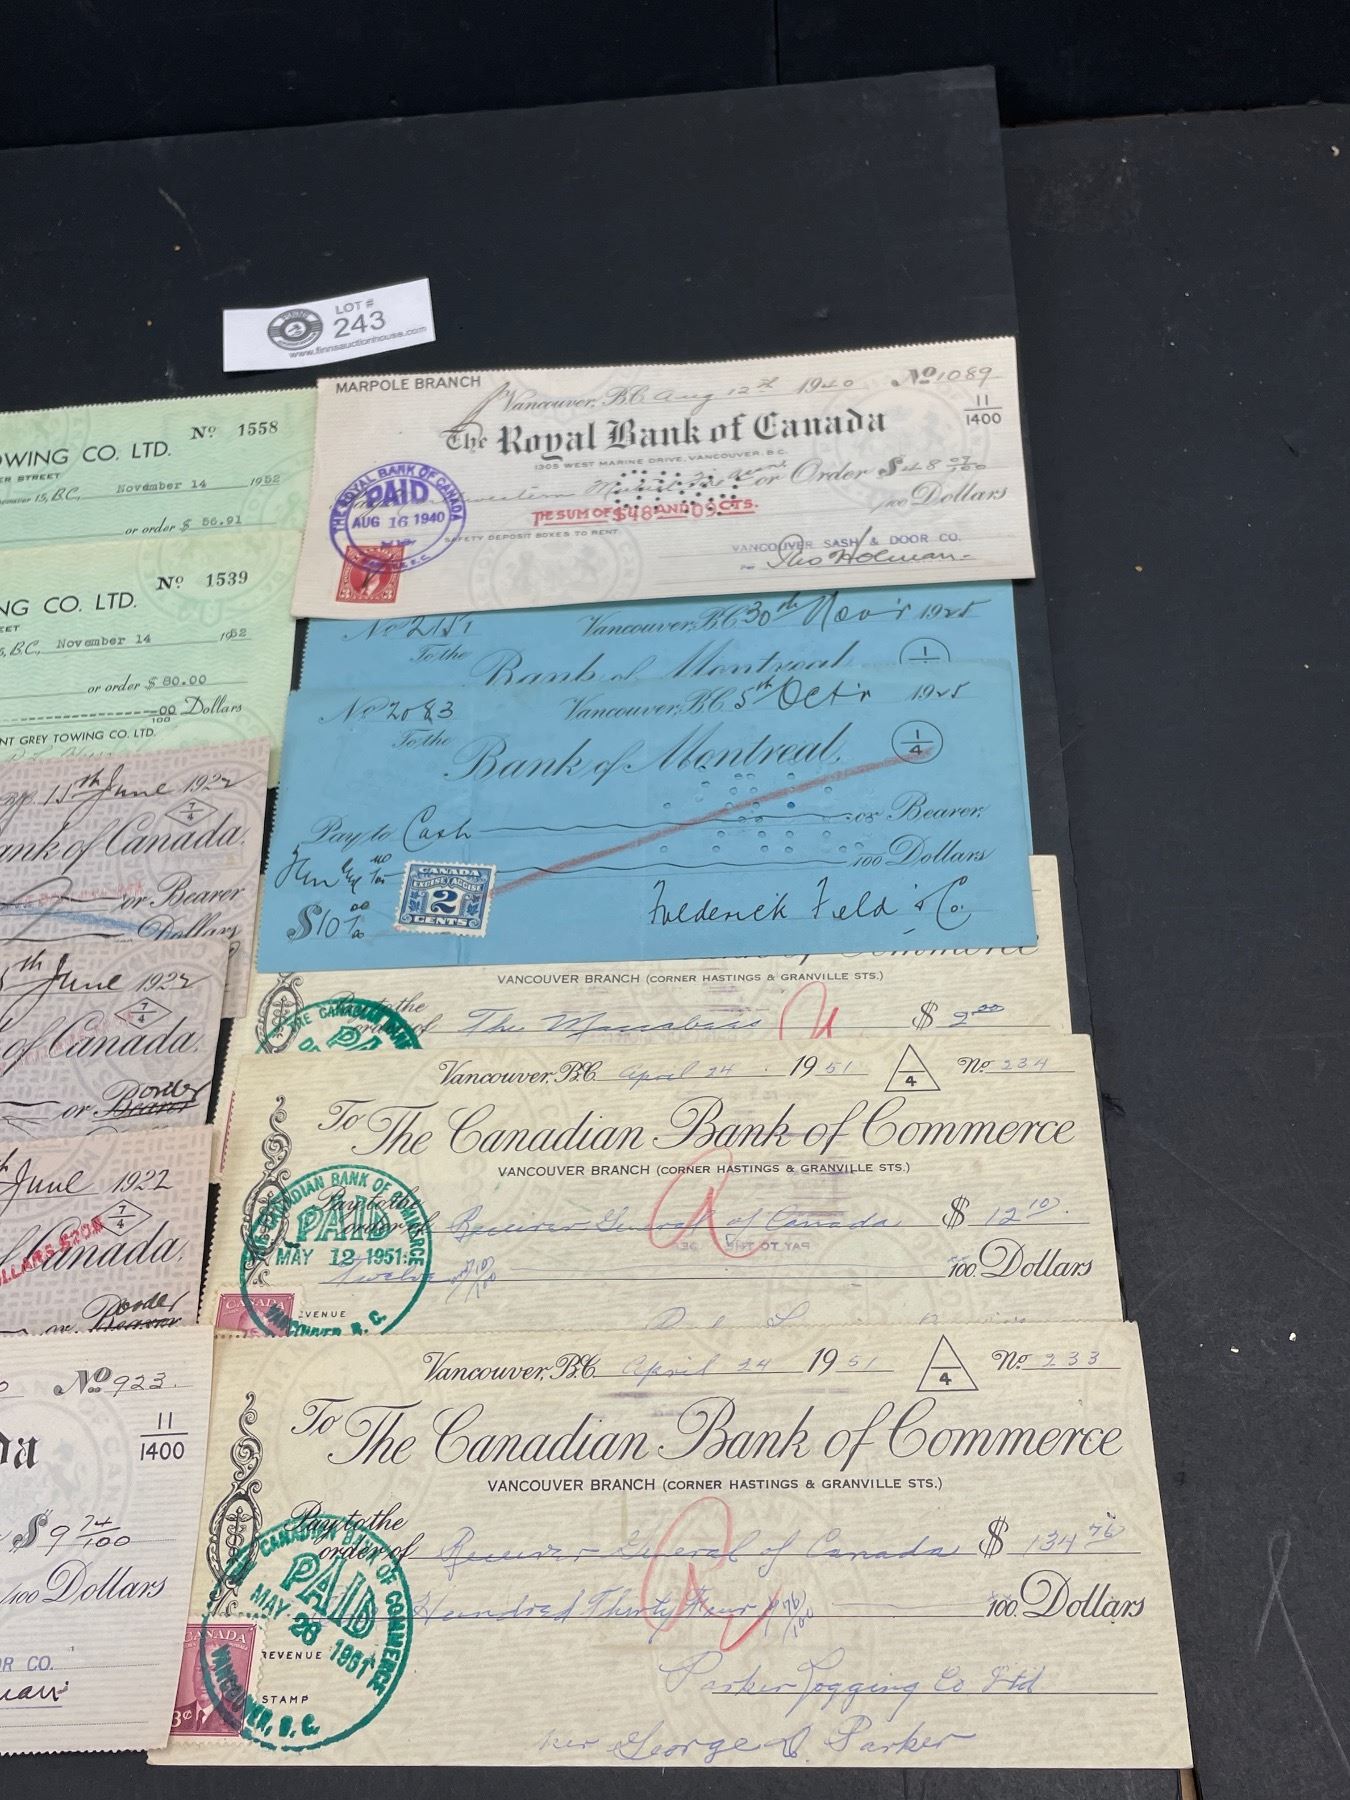 LOT #
243
www.finnsauctionhouse.com
MARPOLE BRANCH
Vancouver, B.C. Aug 12th 1940 No 1089
11
1400
The Royal Bank of Canada
1305 WEST MARINE DRIVE, VANCOUVER, B.C.
or Order $48 09/100
THE SUM OF $48 AND 09 CTS.
/100 Dollars
THE ROYAL BANK OF CANADA
PAID
AUG 16 1940
SAFETY DEPOSIT BOXES TO RENT
VANCOUVER SASH & DOOR CO.
Holman
3 3
OWING CO. LTD.
No 1558
ER STREET
15, B.C., November 14 1952
or order $ 56.91
No 1539
NG CO. LTD.
EET
5, B.C., November 14 1952
or order $ 80.00
00
100 Dollars
NT GREY TOWING CO. LTD.
No 2151 Vancouver, B.C. 30th Nov'r 1925
To the
Bank of Montreal
1
No 2083 Vancouver, B.C. 5th Oct'r 1925
To the
Bank of Montreal
1
4
Pay to Cash or Bearer
100 Dollars
$10 00/00
CANADA
EXCISE ACCISE
2
CENTS
Frederick Field & Co.
15th June 1922
ank of Canada.
7
4
or Bearer
Dollars
5th June 1922
7
4
of Canada.
or Bearer order
June 1922
7
4
Canada.
or Bearer order
Commerce
VANCOUVER BRANCH (CORNER HASTINGS & GRANVILLE STS.)
Pay to the
order of The Maccabees $ 2.00
THE CANADIAN BANK
PA
Vancouver, B.C. April 24 1951
4
No 234
To The Canadian Bank of Commerce
VANCOUVER BRANCH (CORNER HASTINGS & GRANVILLE STS.)
Pay to the
order of Receiver General of Canada $ 12.10
Twelve 10/100
100 Dollars
CANADIAN BANK OF COMMERCE
PAID
MAY 12 1951
VANCOUVER, B.C.
CANADA
EVENUE
Vancouver, B.C. April 24 1951
4
No 233
To The Canadian Bank of Commerce
VANCOUVER BRANCH (CORNER HASTINGS & GRANVILLE STS.)
Pay to the
order of Receiver General of Canada $ 134.76
Hundred Thirty Four 76/100
100 Dollars
CANADIAN BANK OF COMMERCE
PAID
MAY 28 1951
VANCOUVER, B.C.
CANADA
3¢
REVENUE
STAMP
Parker Logging Co Ltd
per George D. Parker
No 923
11
1400
da
$9 74/100
/100 Dollars
R CO.